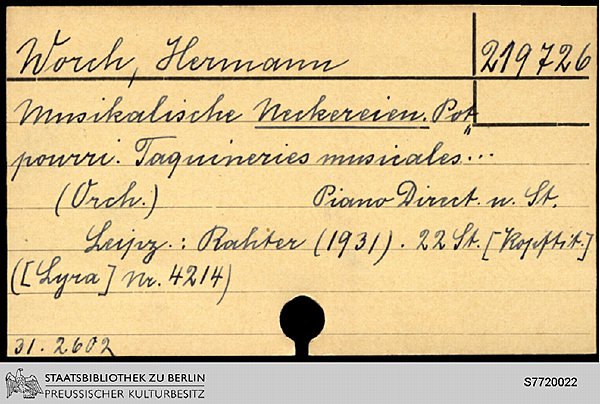 Worch, Hermann
219726
Musikalische Neckereien. Pot
pourri. Taquineries musicales...
(Orch.) Piano Direct. u. St.
Leipz.: Rahter (1931). 22 St. [Kopftit.]
([Lyra] Nr. 4214)
31. 2602
STAATSBIBLIOTHEK ZU BERLIN
PREUSSISCHER KULTURBESITZ
S7720022